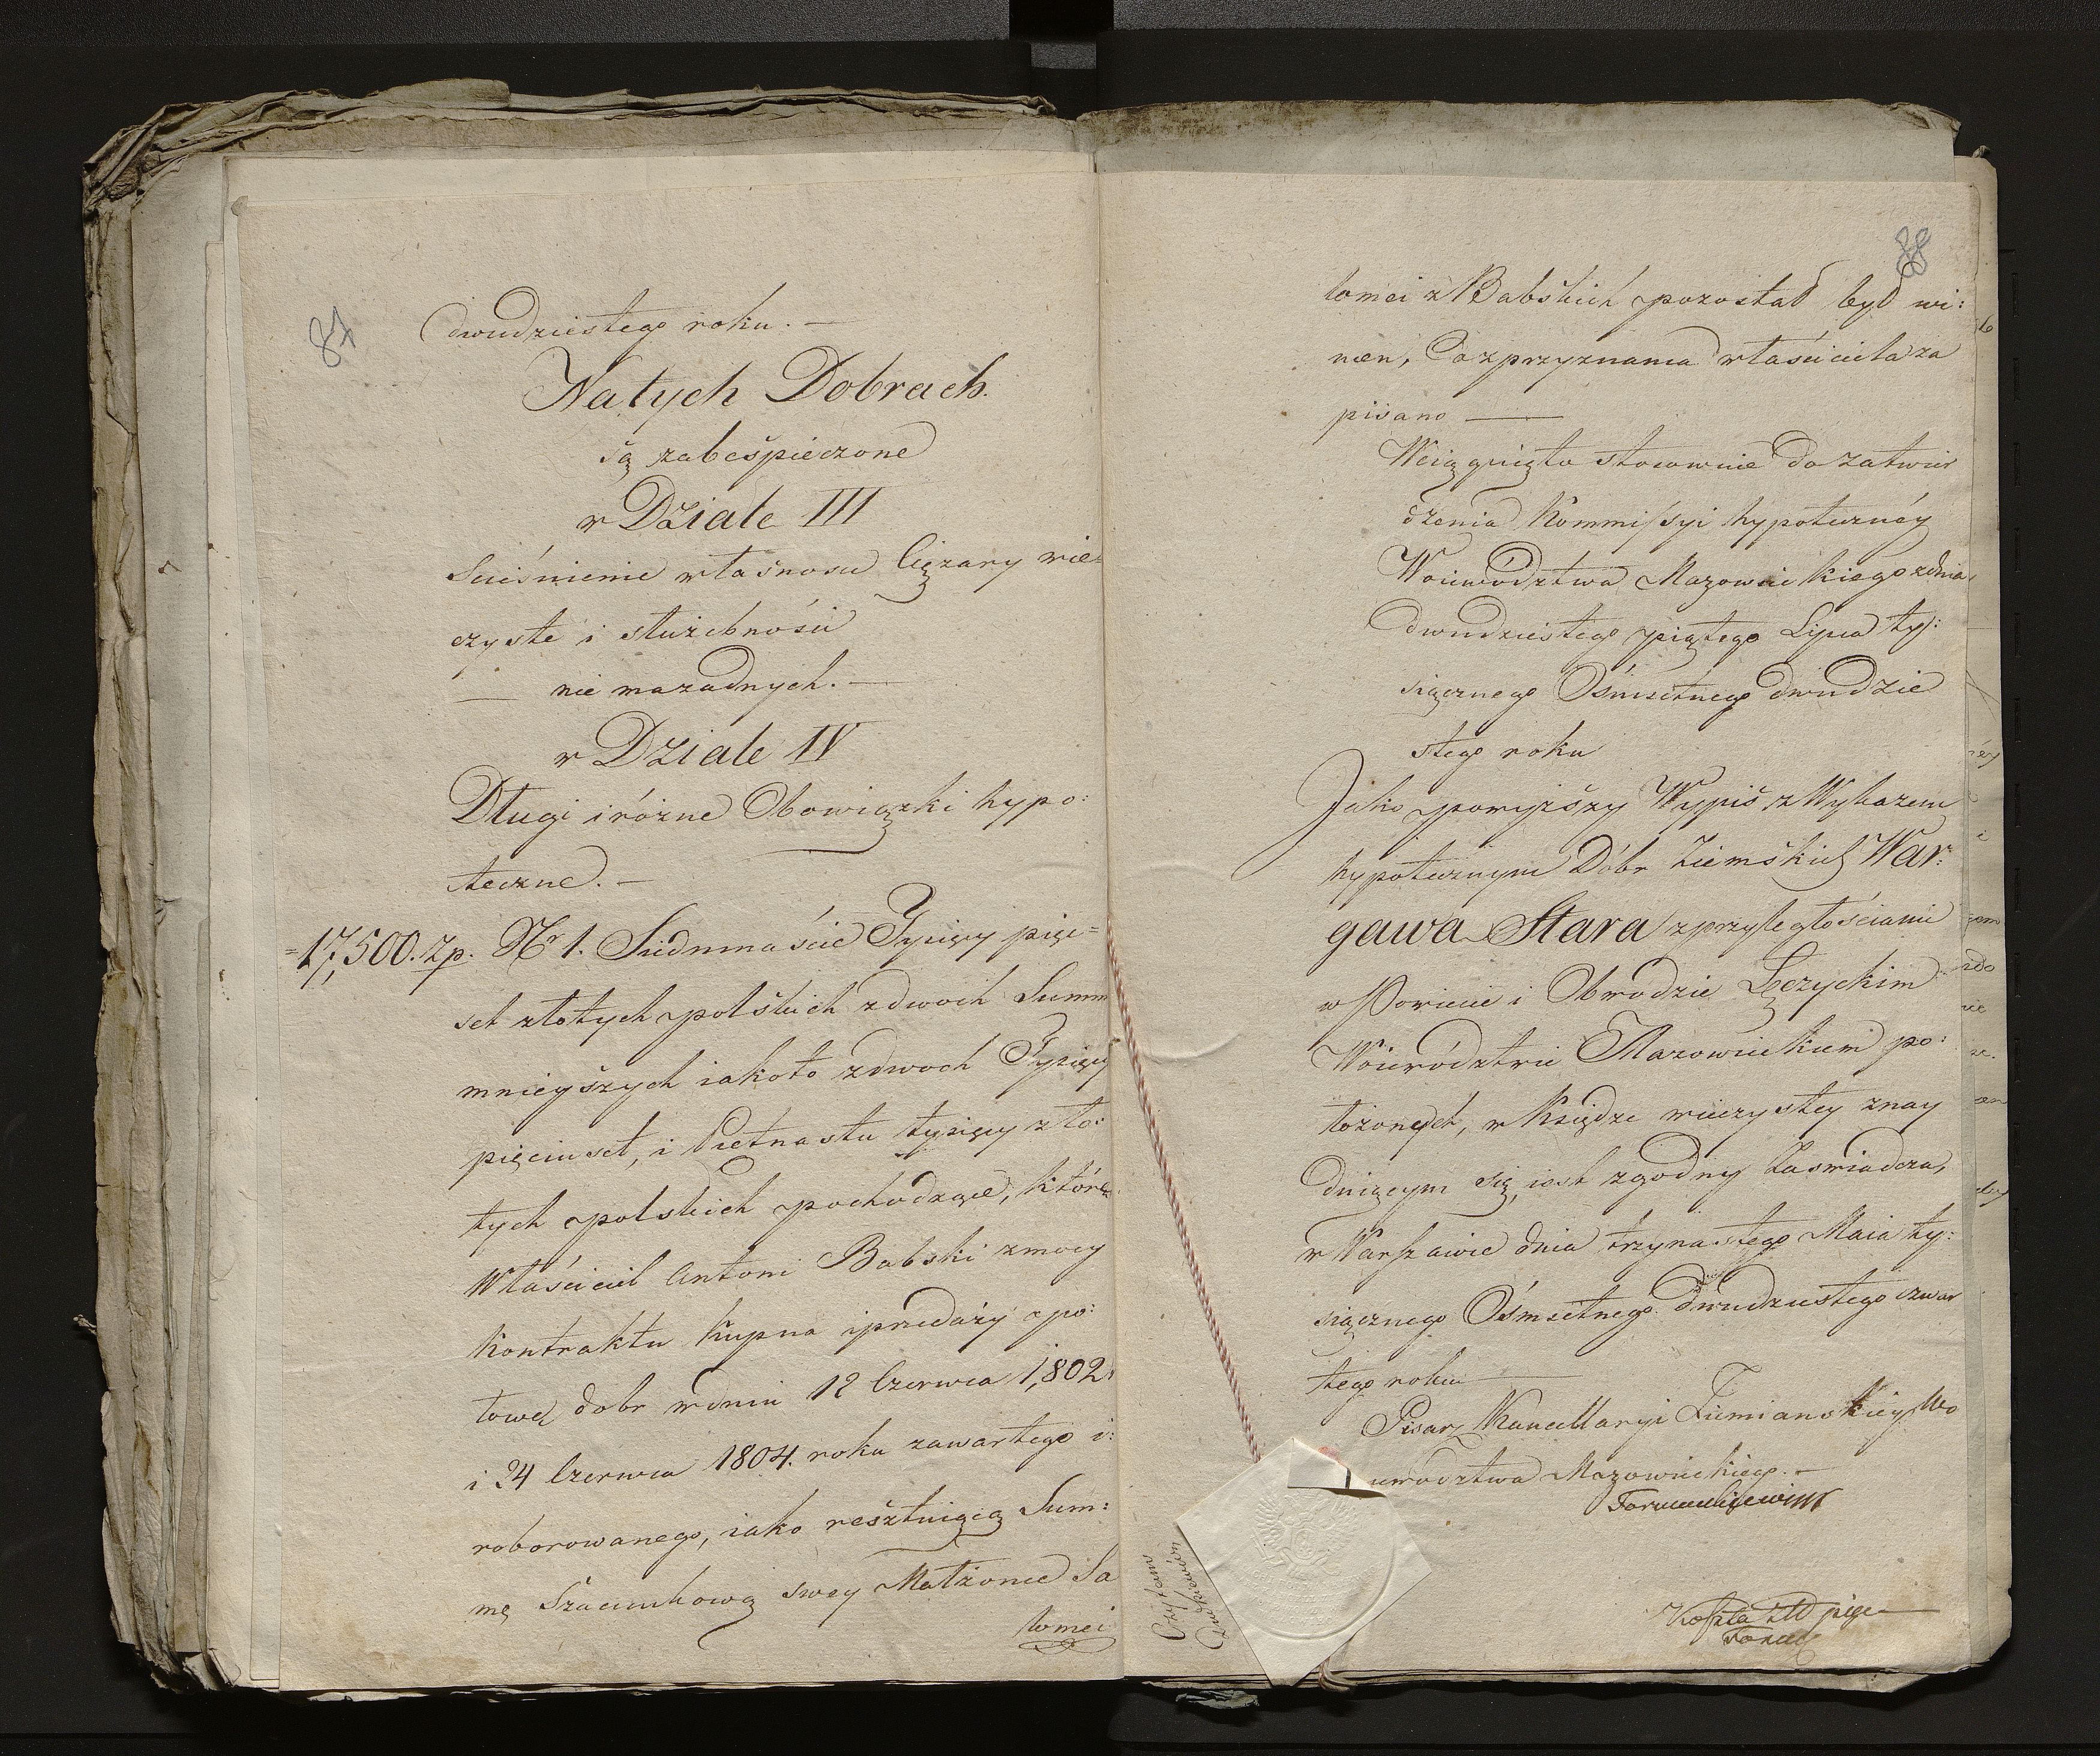 87
dwudziestego roku. —
Na tych Dobrach.
są zabespieczone
w Dziale III
Scieśnienie własnosci Ciężary wie=
czyste i służebnósci
— nie masz żadnych. —
w Dziale IV
Długi i różne Obowiązki hypo:
teczne. —
=17,500. Zp. Nr 1. Siedmnaście Tysięcy pięć=
set złotych polskich z dwoch Summ
mnieyszych iakoto z dwoch Tysięcy
pięciuset, i Piętnastu tysięcy zło:
tych polskich pochodzące, które
Właściciel Antoni Babski z mocy
Kontraktu Kupna i przedaży po:
łowę dobr w dniu 12 Czerwca 1,802.
i 24 Czerwca 1804. roku zawartego i:
roborowanego, iako resztuiącą Sum:
mę Szacunkową swey Małżonce Sa
lomei
88
lomei z Babskich pozostał był wi:
nien, Co z przyznania właściciela za
pisano —
Wciągnięto stosownie do zatwier
dzenia Kommissyi hypoteczney
Woiewództwa Mazowieckiego z dnia
dwudziestego piątego Lipca ty:
siącznego Ośmsetnego dwudzie
stego roku
Jako powyższy Wypis z Wykazem
hypotecznym Dóbr Ziemskich War:
gawa Stara z przyległościami
w Powiecie i Obwodzie Łęczyckim
Woiewództwie Mazowieckiem po:
łożonych, w Księdze wieczystey znay
duiącym się, iest zgodny Zaswiadcza,
w Warszawie dnia trzynastego Maia ty:
siącznego Ośmsetnego Dwudziestego czwar
tego roku —
Pisarz Kancellaryi Ziemianskiey Wo
iewództwa Mazowieckiego. —
Czytano